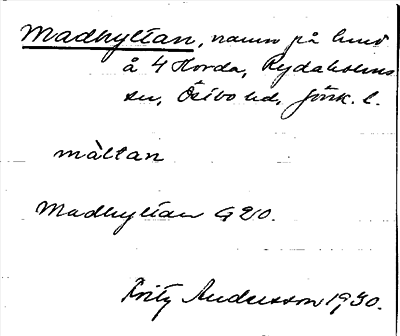 Madhyltan, namn på lund
å 4 Horda, Rydaholms
sn, Östbo hd, Jönk. l.
màltan
Madhyltan G 20.
Fritz Andersson 1930.